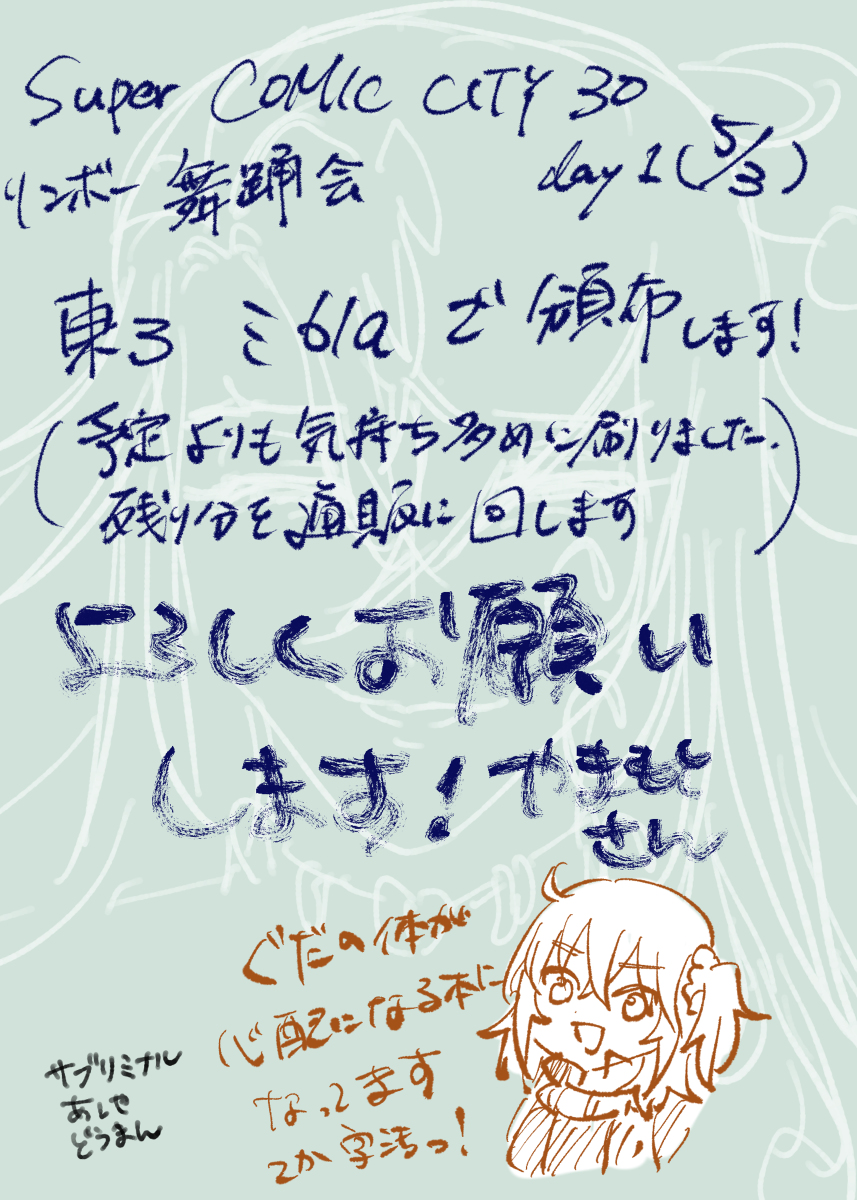 Super COMIC CITY 30
リンボー舞踊会 day1(5/3)
東3 ミ61a で頒布します!
(予定よりも気持ち多めに刷りました.
残り分を通販に回します)
よろしくお願い
します!やまもと
さん
ぐだの体が
心配になる本に
なってます
つか字汚っ!
サブリミナル
あしや
どうまん